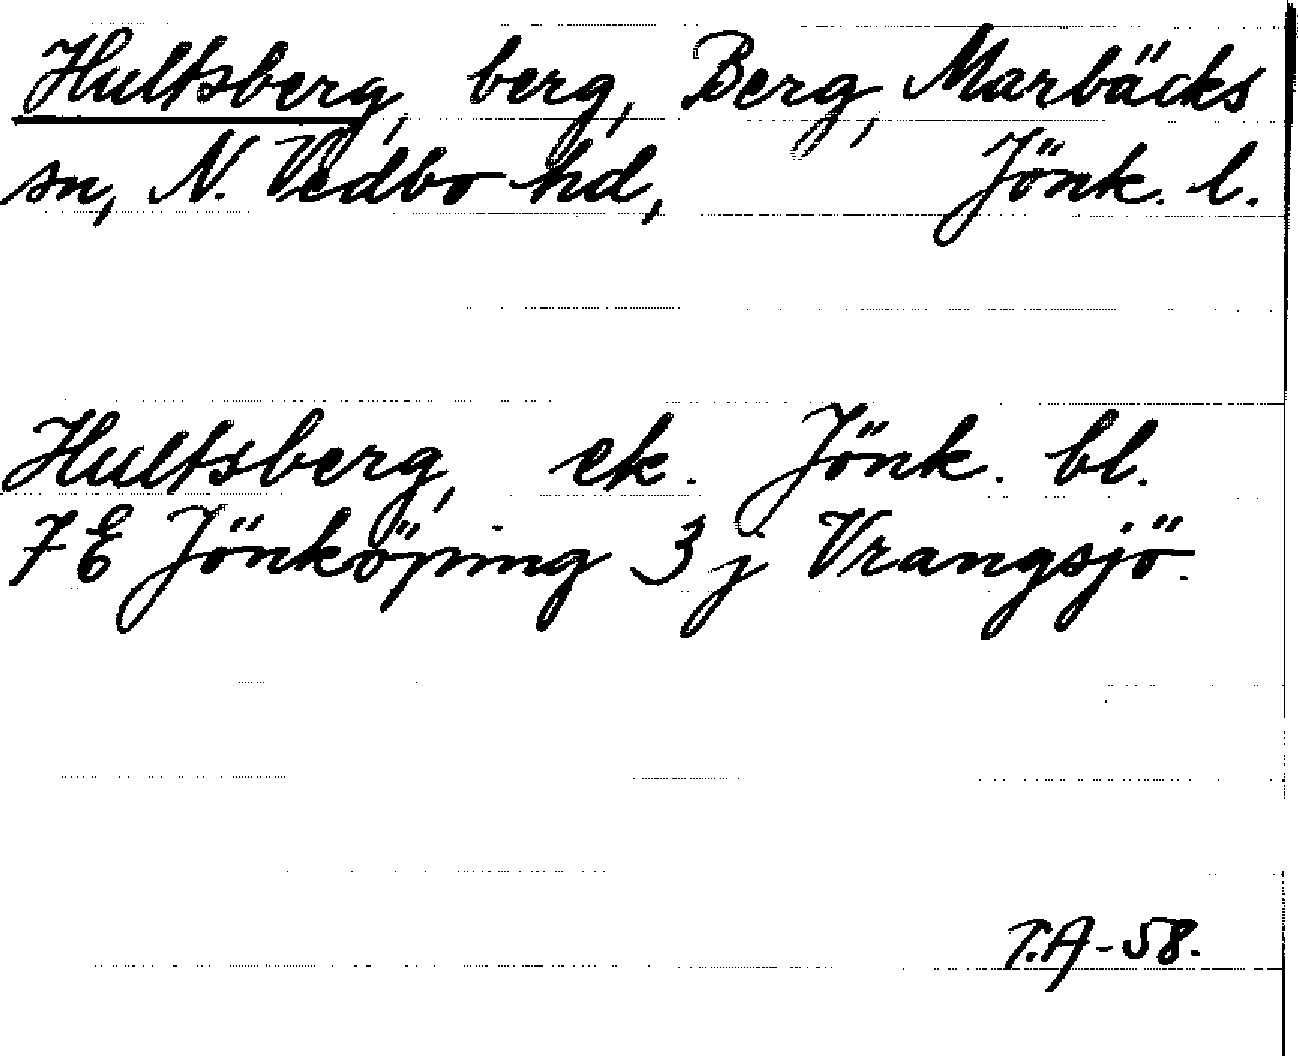 Hultsberg, berg, Berg, Marbäcks
sn, N. Vedbo hd, Jönk. l.
Hultsberg, ek. Jönk. bl.
7E Jönköping 3j Vrangsjö.
T.A-58.